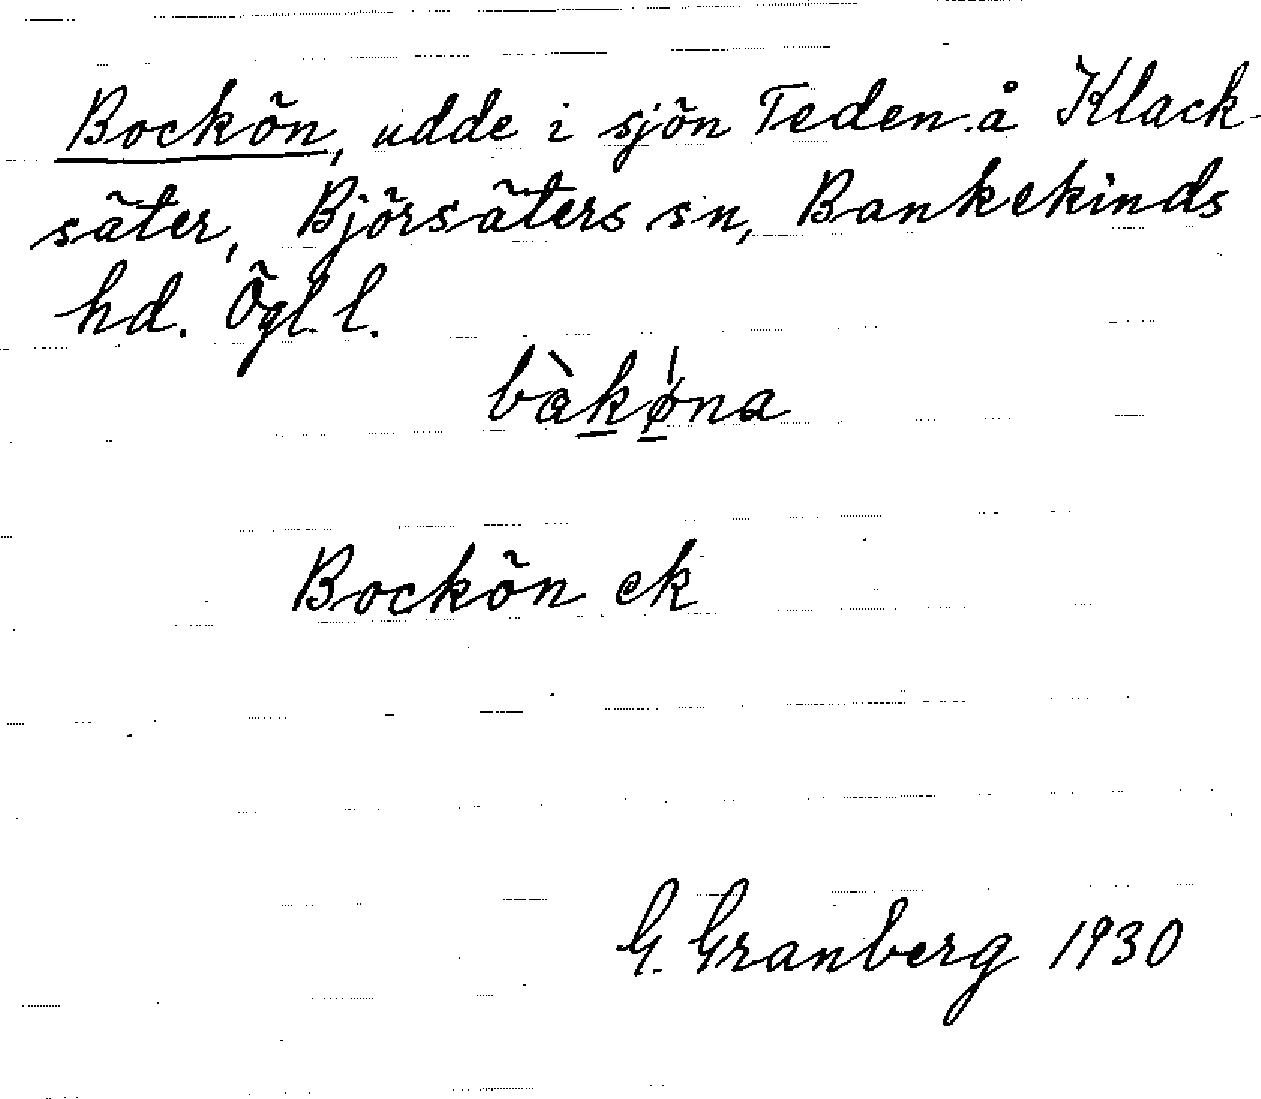 Bockön, udde i sjön Teden å Klack-
säter, Björsäters sn, Bankekinds
hd. Ögl. l.
bàkøna
Bockön ek
G. Granberg 1930